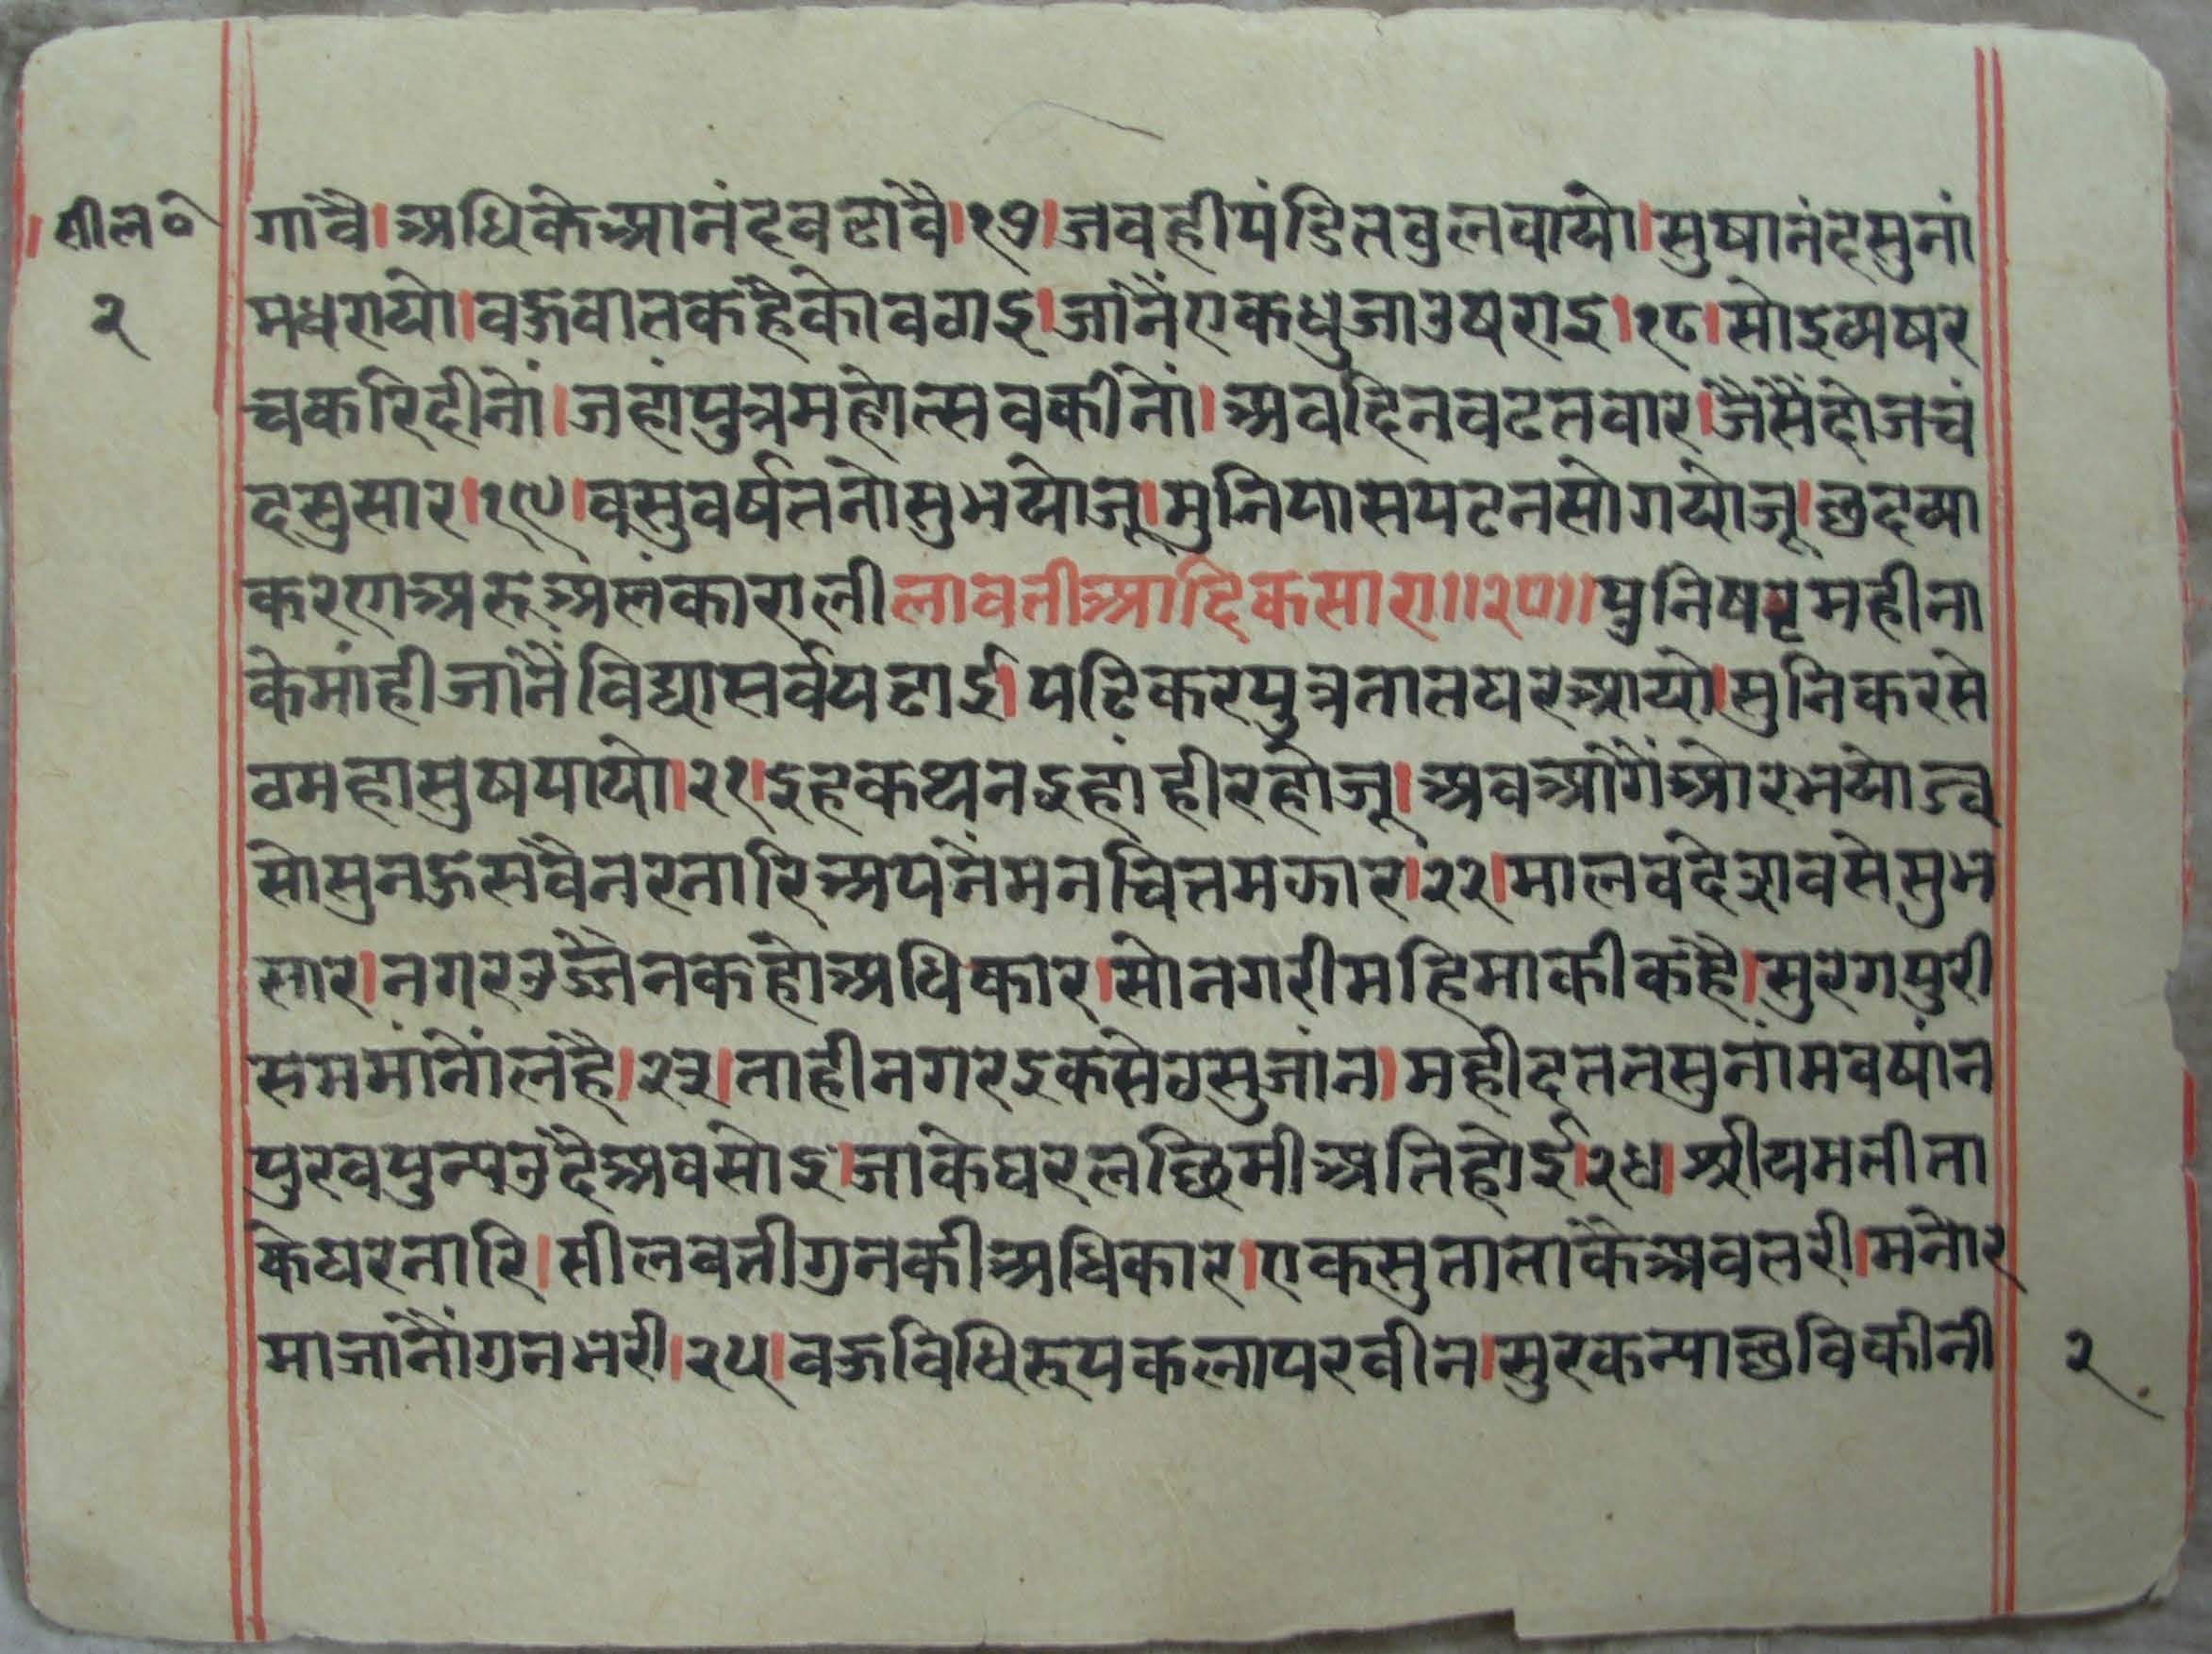 सील०
२
गांवै।अधिकेआनंदवढावै।१७।जवहीपंडितवुलवायो।सुषानंदसुनां
मधरायो।वऊवातकहैकोवगइ।जांनैंएकधुजाउषराइ।१८।सोइव्यषर
चकरिदीनों।जहांपुत्रमहोत्सवकीनों।अवदिनवढतवार।जैसैंदोजचं
दसुसार।१९।वसुवर्षतनोसुभयोजू।मुनिपासपढनसोगयोजू।छंदव्या
करणअरूअलंकारालीलावतीआदिकसारा॥२०॥पुनिषष्टमहीना
केमांहीजांनैंविद्यासर्वपढाई।पढिकरपुत्रतातघरआयो।सुनिकरसे
ठमहासुषपायो।२१।इहकथनइहांहीरहोजू।अवआगैंओरभयोजू
सोसुनऊसवैनरनारिअपनैंमनचित्तमझार।२२।मालवदेशवसेसुभ
सार।नगरउज्जैनकहोअधिकार।सोनगरीमहिमाकीकहै।सुरगपुरी
सममांनोंलहै।२३।ताहीनगरइकसेठसुजांन।महीदततसुनांमवषांन
पुरवपुन्यउदैअवसोइ।जाकेघरलछिमीअतिहोई।२४।श्रीयमतीता
केघरनारि।सीलवतीगुनकीअधिकार।एकसुताताकैअवतरी।मनोर
माजांनौंगुनभरी।२५।वऊविधिरूपकलापरवीन।सुरकन्याछविकीनी
२